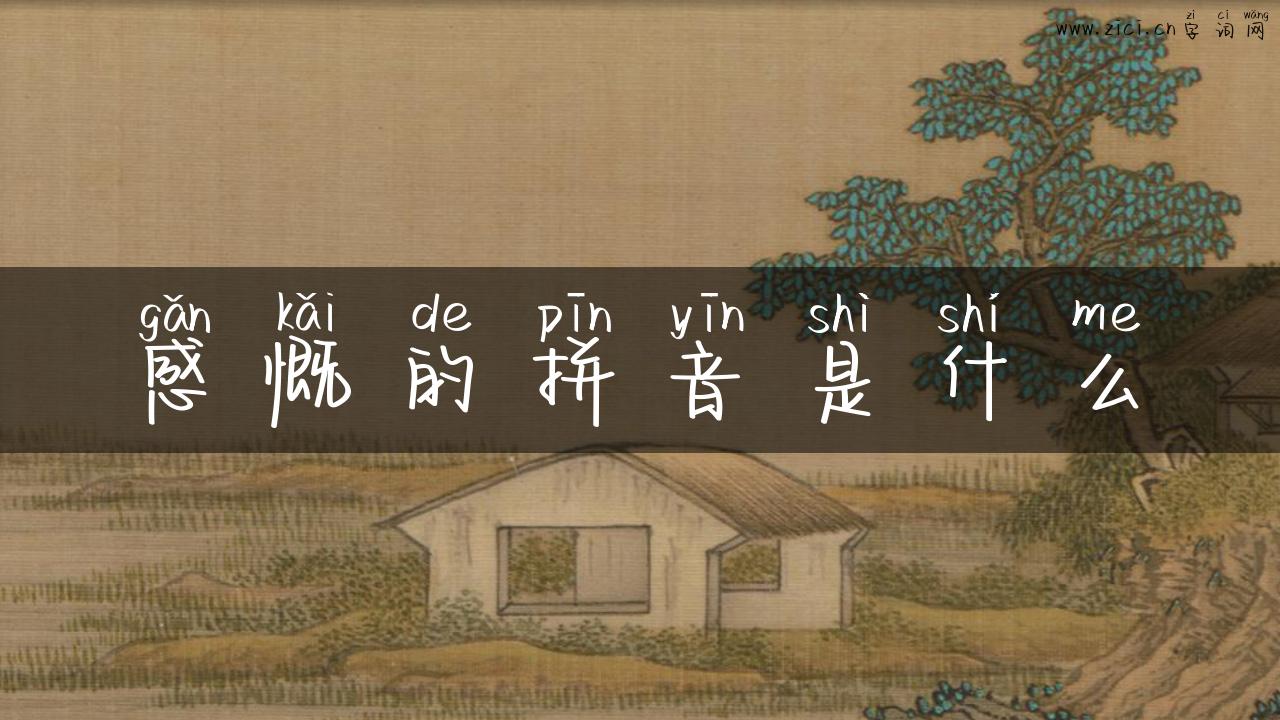 zì cí wǎng
www.zici.cn 字词网
gǎn kǎi de pīn yīn shì shí me
感慨的拼音是什么